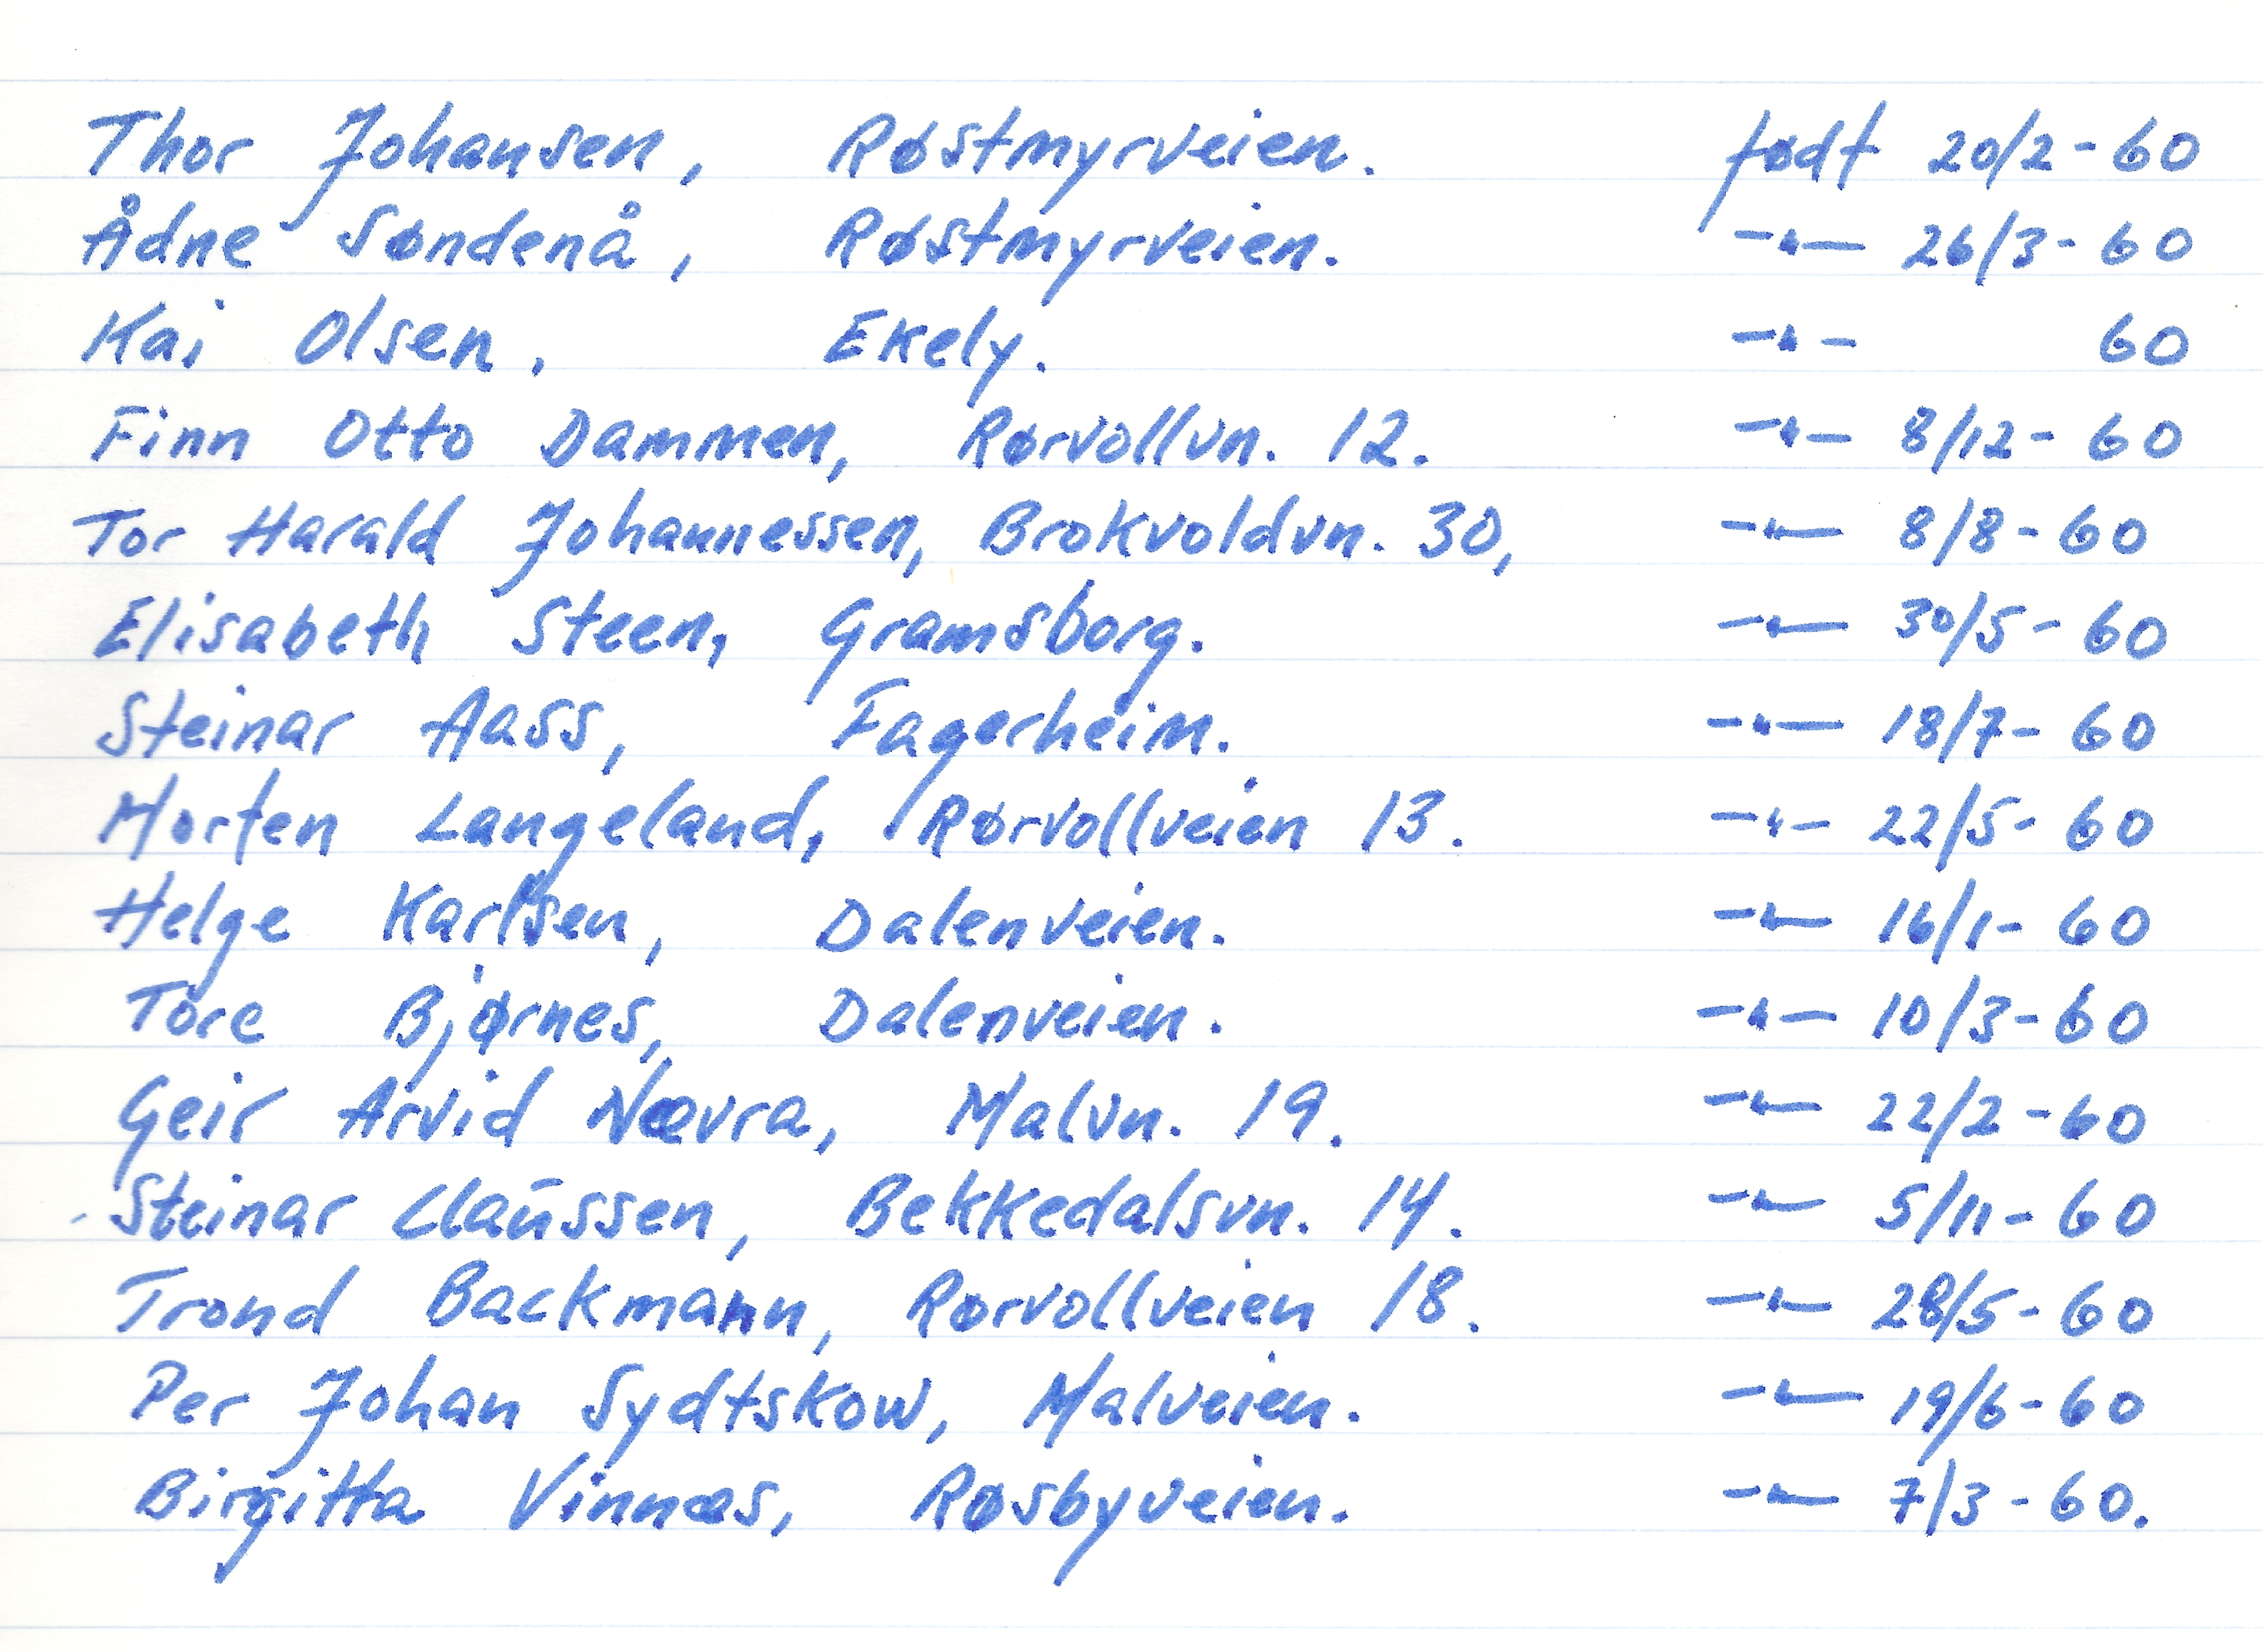 Thor Johansen, Røstmyrveien. født 20/2-60
Ådne Søndenå, Røstmyrveien. —"— 26/3-60
Kai Olsen. Ekely. —"— 60
Finn Otto Dammen, Rørvollvn. 12. —"— 8/12-60
Tor Harald Johannessen, Brokvoldvn. 30, —"— 8/8-60
Elisabeth Steen, Gramsborg. —"— 30/5-60
Steinar Aass, Fagerheim. —"— 18/7-60
Morten Langeland, Rørvollveien 13. —"— 22/5-60
Helge Karlsen, Dalenveien. —"— 16/1-60
Tore Bjørnes, Dalenveien. —"— 10/3-60
Geir Arvid Nævra, Malvn. 19. —"— 22/2-60
Steinar Claussen, Bekkedalsvn. 14. —"— 5/11-60
Trond Backmann, Rørvollveien 18. —"— 28/5-60
Per Johan Sydtskow, Malveien. —"— 19/6-60
Birgitta Vinnæs, Røsbyveien. —"— 7/3-60.